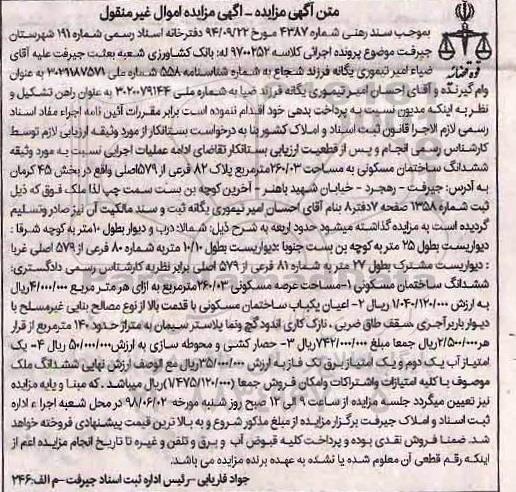 متن آگهی مزایده - آگهی مزایده اموال غیر منقول
بموجب سند رهنی شماره ۴۳۸۷ مورخ ۹۴/۰۹/۲۲ دفترخانه اسناد رسمی شماره ۱۹۱ شهرستان
جیرفت موضوع پرونده اجرائی کلاسه ۹۷۰۰۲۵۲ له: بانک کشاورزی شعبه بعثت جیرفت علیه آقای
ضیاء امیر تیموری یگانه فرزند شجاع به شماره شناسنامه ۵۵۸ شماره ملی ۳۰۲۹۱۸۷۵۷۱ به عنوان
وام گیرنده و آقای احسان امیر تیموری یگانه فرزند ضیا به شماره ملی ۳۰۲۰۰۷۹۱۴۴ به عنوان راهن تشکیل و
نظر به اینکه مدیون نسبت به پرداخت بدهی خود اقدام ننموده است برابر مقررات آئین نامه اجراء مفاد اسناد
رسمی لازم الاجرا قانون ثبت اسناد و املاک کشور بنا به درخواست بستانکار از مورد وثیقه ارزیابی لازم توسط
کارشناس رسمی انجام و پس از قطعیت ارزیابی بستانکار تقاضای ادامه عملیات اجرایی نسبت به مورد وثیقه
ششدانگ ساختمان مسکونی به مساحت ۲۶۰/۰۳ مترمربع پلاک ۸۲ فرعی از ۵۷۹ اصلی واقع در بخش ۴۵ کرمان
به آدرس: جیرفت - رهجرد - خیابان شهید باهنر - آخرین کوچه بن بست سمت چپ لذا ملک فوق که ذیل
ثبت شماره ۱۳۵۸ صفحه ۷ دفتر ۸ بنام آقای احسان امیر تیموری یگانه ثبت و سند مالکیت آن نیز صادر وتسلیم
گردیده است به مزایده گذاشته میشود حدود اربعه به شرح ذیل: شمالا: درب و دیوار بطول ۱۰ متر به کوچه شرقا :
دیواریست بطول ۲۵ متر به کوچه بن بست جنوبا : دیواریست بطول ۱۰/۱۰ متر به شماره ۸۰ فرعی از ۵۷۹ اصلی غربا
: دیواریست مشترک بطول ۲۷ متر به شماره ۸۱ فرعی از ۵۷۹ اصلی برابر نظریه کارشناس رسمی دادگستری:
ششدانگ ساختمان مسکونی ۱- مساحت عرصه مسکونی ۲۶۰/۰۳ مترمربع به ازای هر متر مربع ۴/۰۰۰/۰۰۰ ریال
به ارزش ۱/۰۴۰/۱۲۰/۰۰۰ ریال ۲- اعیان یکباب ساختمان مسکونی با قدمت بالا از نوع مصالح بنایی غیرمسلح با
دیوار باربر آجری ، سقف طاق ضربی ، نازک کاری اندود گچ ونما پلاستر سیمان به متراژ حدود ۱۴۰ مترمربع از قرار
هر ۲/۵۰۰/۰۰۰ ریال جمعا مبلغ ۷۴۲/۰۰۰/۰۰۰ ریال ۳- حصار کشی و محوطه سازی به ارزش ۵۰/۰۰۰/۰۰۰ ریال ۴- یک
امتیاز آب یک دوم و یک امتیاز برق تک فاز به ارزش ۳۵/۰۰۰/۰۰۰ ریال مع الوصف ارزش نهایی ششدانگ ملک
موصوف با کلیه امتیازات واشتراکات وامکان فروش جمعا (۱/۷۴۷۵/۱۲۰/۰۰۰) ریال میباشد . که مبنا و پایه مزایده
نیز تعیین میگردد جلسه مزایده از ساعت ۹ الی ۱۲ صبح روز شنبه مورخه ۹۸/۰۶/۰۲ در محل شعبه اجراء اداره
ثبت اسناد و املاک جیرفت برگزار مزایده از مبلغ مذکور شروع و به بالا ترین قیمت پیشنهادی فروخته خواهد
شد. ضمنا فروش نقدی بوده و پرداخت کلیه قبوض آب و برق و تلفن و غیره تا تاریخ انجام مزایده اعم از
اینکه رقم قطعی آن معلوم شده یا نشده به عهده برنده مزایده می باشد.
جواد فاریابی - رئیس اداره ثبت اسناد جیرفت - م الف: ۲۴۶